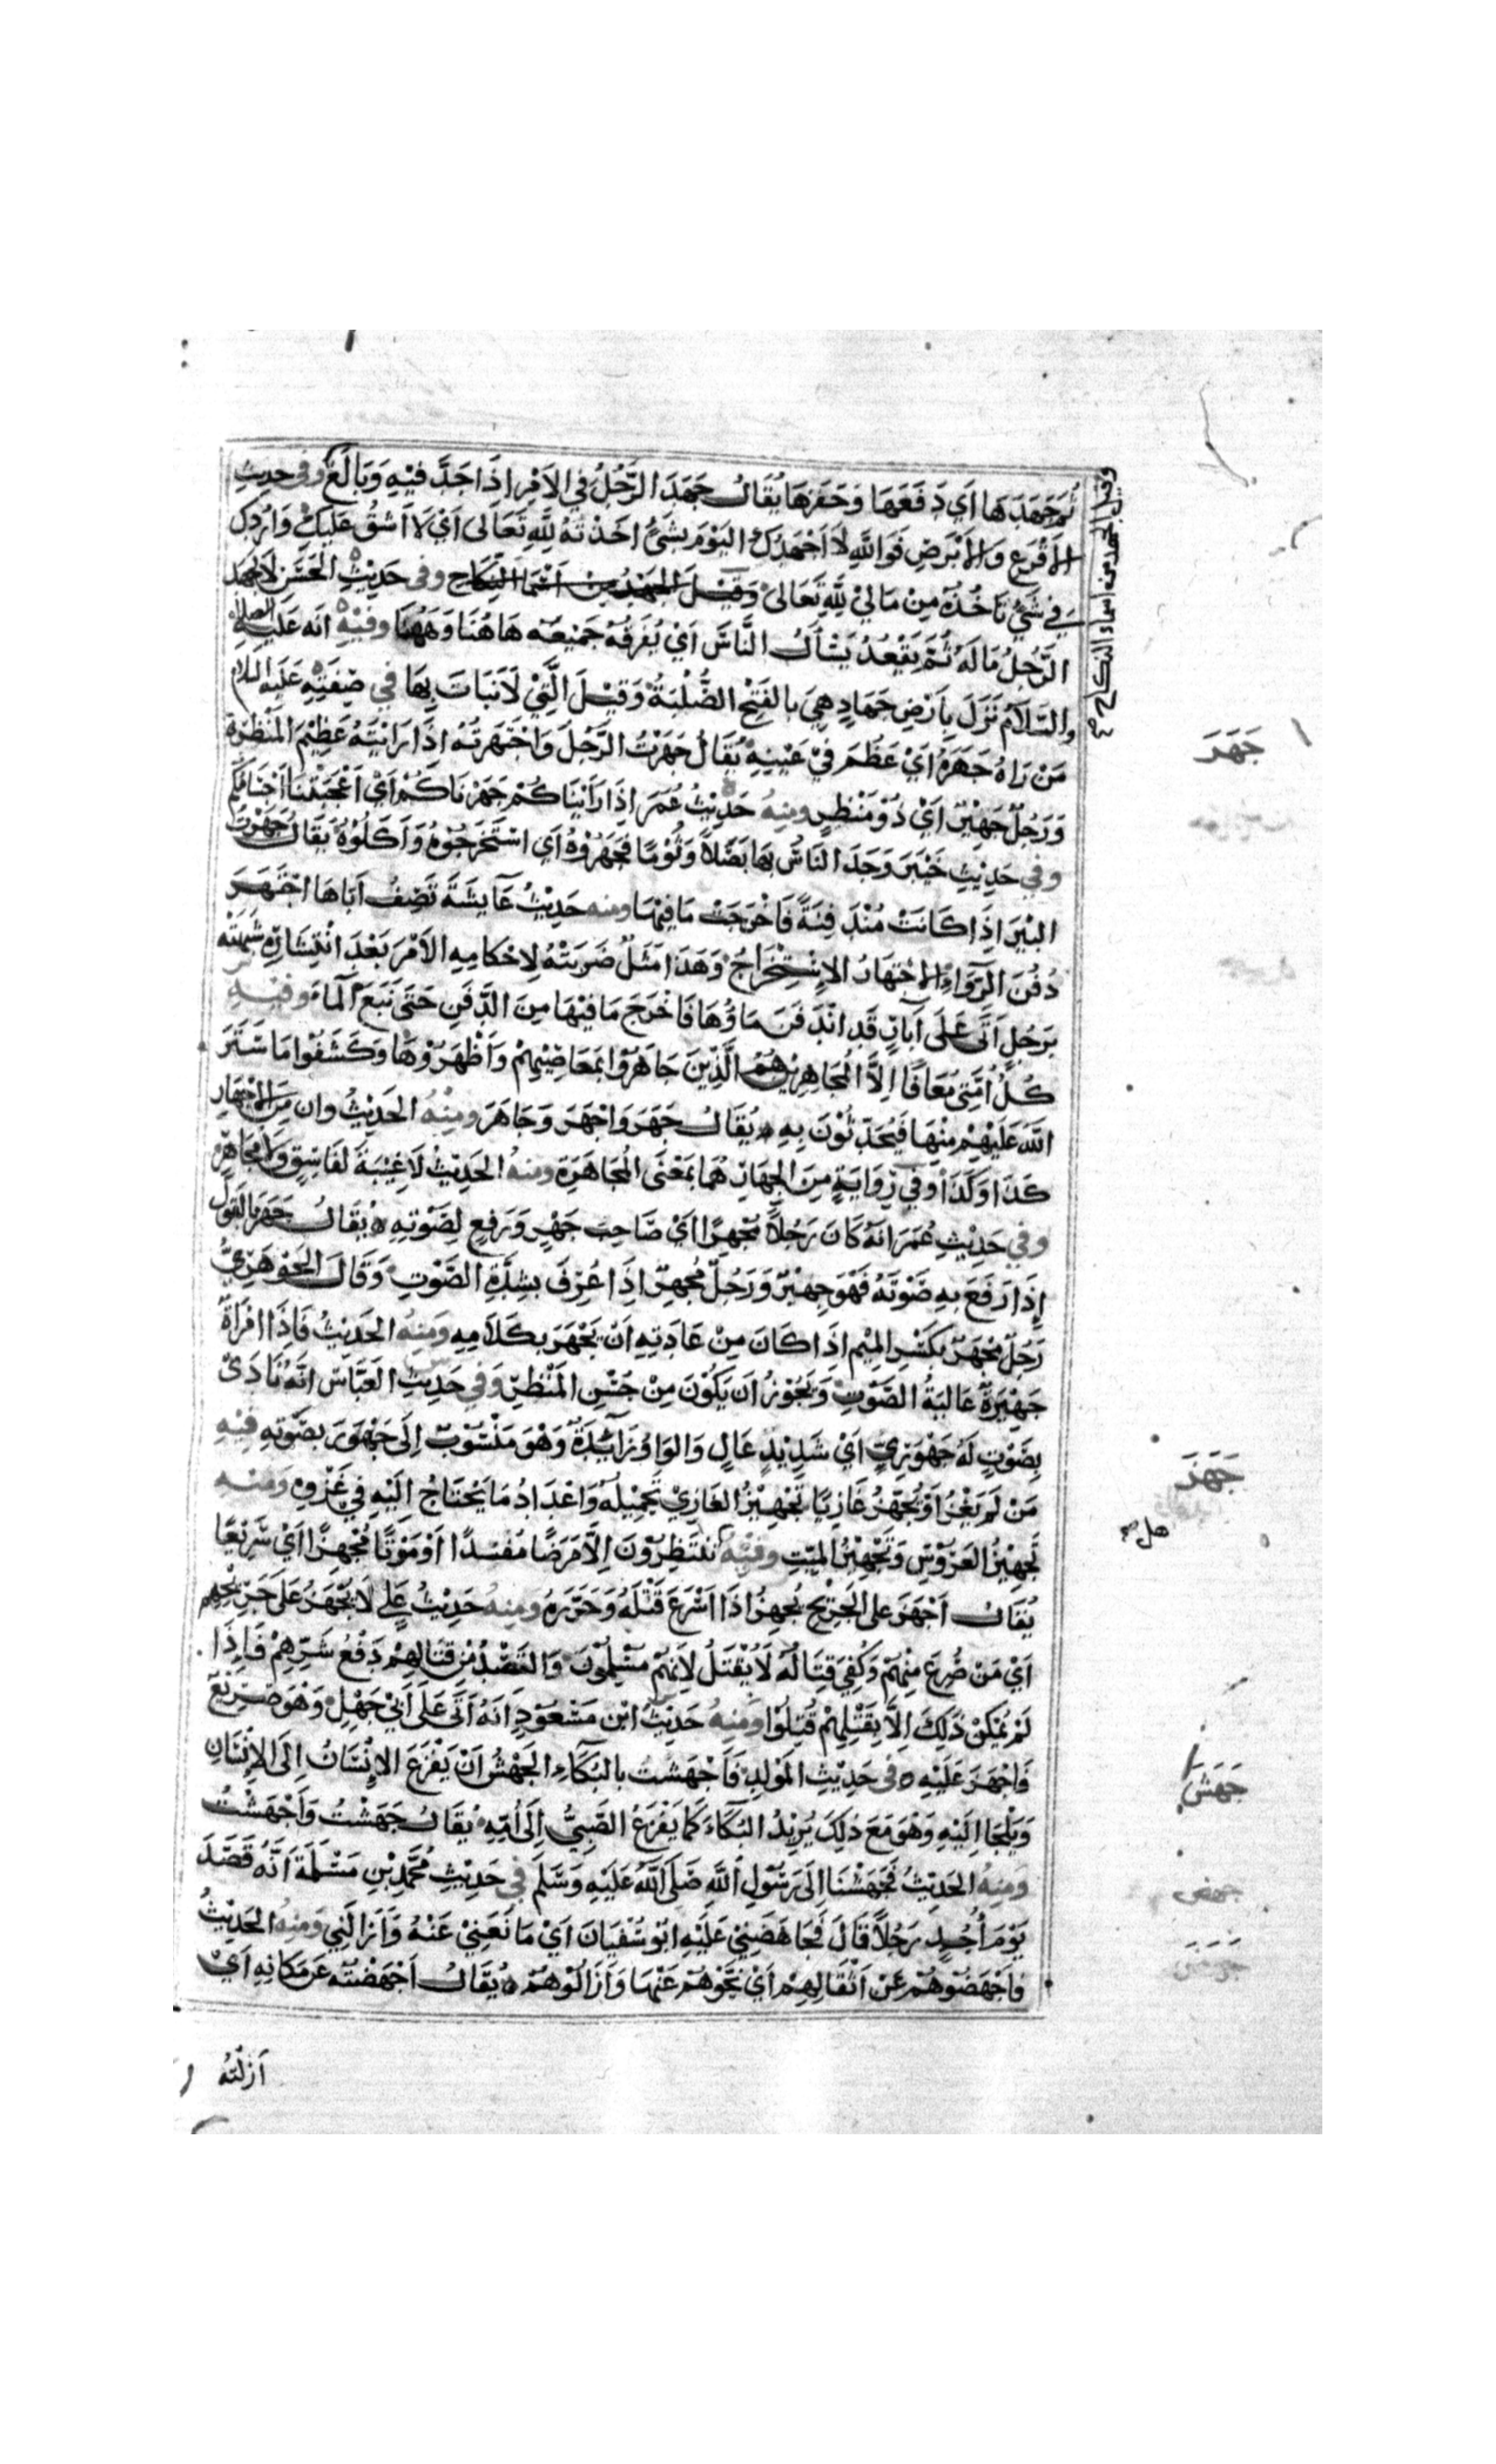 ثُمَّ جَهَدَهَا اَي دَفَعَهَا وَحَفَزَهَا يُقَالُ جَهَدَ الرَّجُلُ فِي الاَمْرِ اِذَا جَدَّ فِيْهِ وَبَالَغَ وفي حديثِ
الاَقْرَعِ وَالاَبْرَصِ فَوَاللّهِ لاَ اَجْهَدُكَ اليَوْمَ بِشَيْءٍ اَخَذْتَهُ لِلّهِ تَعَالَى اَيْ لاَ اَشُقُّ عَلَيْكَ وَاَرُدُّكَ
فِي شَيْءٍ تَاخُذُهُ مِنْ مَالِيْ لِلّهِ تَعَالَى وَقِيْلَ الجَهْدُ مِنْ اَسْمَاءِ النِّكَاحِ وفي حَدِيْثِ الحَسَنِ لاَ يَجْهَدُ
الرَّجُلُ مَالَهُ ثُمَّ يَقْعُدُ يَسْأَلُ النَّاسَ اَيْ يُفَرِّقُهُ جَمِيْعَهُ هَاهُنَا وَهَهُنَا وَفِيْهِ انّه عَلَيْهِ الصلاة
والسَّلاَمُ نَزَلَ بِاَرْضٍ جَهَادٍ هِيَ بِالفَتْحِ الصُّلْبَةُ وَقِيْلَ الَّتِيْ لاَ نَبَاتَ بِهَا فِي صِفَتِهِ عَلَيْهِ السلام
مَنْ رَاهُ جَهَرَهُ اَيْ عَظُمَ فِيْ عَيْنِيهِ يُقَالُ جَهَرْتُ الرَّجُلَ وَاجْتَهَرْتُهُ اِذَا رَايْتَهُ عَظِيْمَ المَنْظَرَةِ
وَرَجُلٌ جَهِيْرٌ اَيْ ذُوْ مَنْظَرٍ ومِنهُ حَدِيْثُ عُمَرَ اِذَا رَاَيْنَاكُمْ جَهَرْنَاكُمْ اَيْ اَعْجَبَتْنَا اَجْسَامُكُمْ
وَفِي حَدِيْثِ خَيْبَرَ وَجَدَ النَاسُ بِهَا بَصَلاً وَثُوْمًا فَجَهَرُوْهُ اَي اسْتَخْرَجُوْهُ وَاَكَلُوْهُ يَقَالُ جَهَرْتُ
البِيْرَ اِذَا كَانَتْ مُنْدَفِنَةً فَاَخْرَجَتْ مَا فِيْهَا ومنه حَدِيْثُ عَايشَةَ تَصِفُ اَبَاهَا اجْتَهَرَ
دُفُنَ الرَّوَاءِ الاجْتِهَارُ الاِسْتِخْرَاجُ وَهَذَا مَثَلٌ ضَرَبَتْهُ لاِحْكَامِهِ الاَمْرَ بَعْدَ انْتِشَارِهِ شَبَّهَتْه
بِرَجُلٍ اَتَى عَلَى آبَارٍ قَد انْدَفَنَ مَاؤُهَا فَاَخْرَجَ مَا فِيْهَا مِنَ الدَّفَنِ حَتَّى نَبَعَ الْمَاءُ وَفِيْهِ
كُلُّ اُمَّتِي مُعَافًا اِلاَّ الْمُجَاهِرِيْنَ هُمُ الَّذِيْنَ جَاهَرُوْا بِمَعَاصِيْهِمْ وَاَظْهَرُوْهَا وَكَشَفُوْا مَا سَتَرَ
اللّهُ عَلَيْهِمْ مِنْهَا فَيُحَدِّثُوْنَ بِهِ يُقَالُ جَهَرَ وَاَجْهَرَ وَجَاهَرَ ومِنْهُ الحَدِيْثُ وان مِنَ الاِجْهَارِ
كَذَا وَكَذَا وَفِي رِوَايَةٍ مِنَ الجِهَارِ هُمَا بِمَعْنَى الْمُجَاهَرَةِ ومِنهُ الحَدِيْثُ لاَ غِيْبَةَ لفَاسِقٍ وَلاَ مُجَاهِرٍ
وفِي حَدِيْثِ عُمَرَ انَّهُ كَانَ رَجُلاً مُجْهِرًا اَيْ صَاحِبَ جَهْرٍ وَرَفْعٍ لِصَوْتِهِ يُقَالُ جَهَرَ بِالقَوْلِ
اِذَا رَفَعَ بِهِ صَوْتَهُ فَهْوَ جَهِيْرٌ وَرَجُلٌ مُجْهِرٌ اِذَا عُرِفَ بِشِدَّةِ الصَّوْتِ وَقَالَ الجَوْهَرِيُّ
رَجُلٌ مِجْهَرٌ بِكَسْرِ المِيْمِ اِذَا كَانَ مِنْ عَادَتِهِ اَنْ يَجْهَرَ بِكَلاَمِهِ وَمِنهُ الحَدِيْثُ فَاِذَا امْرَاَةٌ
جَهِيْرَةٌ عَالِيَةُ الصَّوْتِ وَيَجُوْزُ اَن يَكُوْنَ مِنْ حُسْنِ المَنْظَرِ وَفِي حَدِيْثِ العَبَّاسِ انَّهُ نَادَى
بِصَوْتٍ لَهُ جَهْوَرِيٍّ اَيْ شَدِيْدٍ عَالٍ وَالوَاوُ زَائِدَةٌ وَهْوَ مَنْسُوْبٌ اِلَى جَهْوَرَ بِصَوْتِهِ فِيْهِ
مَنْ لَمْ يَغْزُ اَوْ يُجَهِّزْ غَازِيًا تَجْهِيْزُ الغَازِيْ تَحْمِيْلُهُ وَاعْدَادُ مَا يَحْتَاجُ اِلَيْهِ فِي غَزْوِهِ وَمِنْهِ
تَجْهِيْزُ العَرُوْسِ وَتَجْهِيْزُ المَيِّتِ وفِيْهِ تَنْتَظِرُوْنَ اِلاَّ مَرَضًا مُفْسِدًا اَوْ مَوْتًا مُجْهِزًا اَيْ سَرِيْعًا
يُقَالُ اَجْهَزَ على الجَرِيْحِ يُجْهِزُ اذَا اَسْرَعَ قَتْلَهُ وَحَرَّرَهُ وَمِنهُ حَدِيْثُ عَلِي لاَ يُجْهَزُ عَلَى جَرِيْحِهِمْ
اَيْ مَنْ صُرِعَ مِنْهُمْ وَكُفِيَ قِتَالُهُ لاَ يُقْتَلُ لاِنَّهُمْ مُسْلِمُوْنَ وَالقَصْدُ مِن قِتَالِهِمْ دَفْعُ شَرِّهِمْ فَاِذَا
لَمْ يُمْكِنْ ذَلِكَ اِلاَّ بِقَتْلِهِمْ قُتِلُوْا وَمِنهُ حَدِيْثُ ابْنِ مَسْعُوْدٍ اَنَّهُ اَتَى عَلَى اَبِيْ جَهْلٍ وَهْوَ صَرِيْعٌ
فَاَجْهَزَ عَلَيْهِ فى حَدِيْثِ المَوْلِدِ فَاَجْهَشْتُ بِالبُكَاءِ الجَهْشُ اَنْ يَفْزَعَ الاِنْسَانُ اِلَى الاِنْسَانِ
وَيَلْجَا اِلَيْهِ وَهْوَ مَعَ ذَلِكَ يُرِيْدُ البُكَاءَ كَمَا يَفْزَعُ الصَّبِيُّ اِلَى اُمِّهِ يُقَالُ جَهَشْتُ وَاَجْهَشْتُ
وَمِنهُ الحَدِيْثُ فَجَهَشْنَا اِلَى رَسُوْلِ اللّهِ صَلَّى اللّهُ عَلَيْهِ وَسَلَّمَ فِي حَدِيْثِ مُحَمَّدِ بْنِ مَسْلَمَةَ اَنَّهُ قَصَدَ
يَوْمَ أُحُدٍ رَجُلاً قَالَ فَجَاهَضَنِيْ عَلَيْهِ ابُوْ سُفْيَانَ اَيْ مَانَعَنِيْ عَنْهُ وَاَزَالَنِي وَمِنهُ الحَدِيْثُ
فَاَجْهَضُوْهُمْ عَنْ اَثْقَالِهِمْ اَيْ نَحَّوْهُمْ عَنْهَا وَاَزَالُوْهُمْ يُقَالُ اَجْهَضْتُهُ عَن مَكَانِهِ اَيْ
اَزَلْتُهُ
وقيل الجهد من اسماء النكاح صح
جَهَرَ
جَهَزَ
هل صح
جَهَشَ
جهض